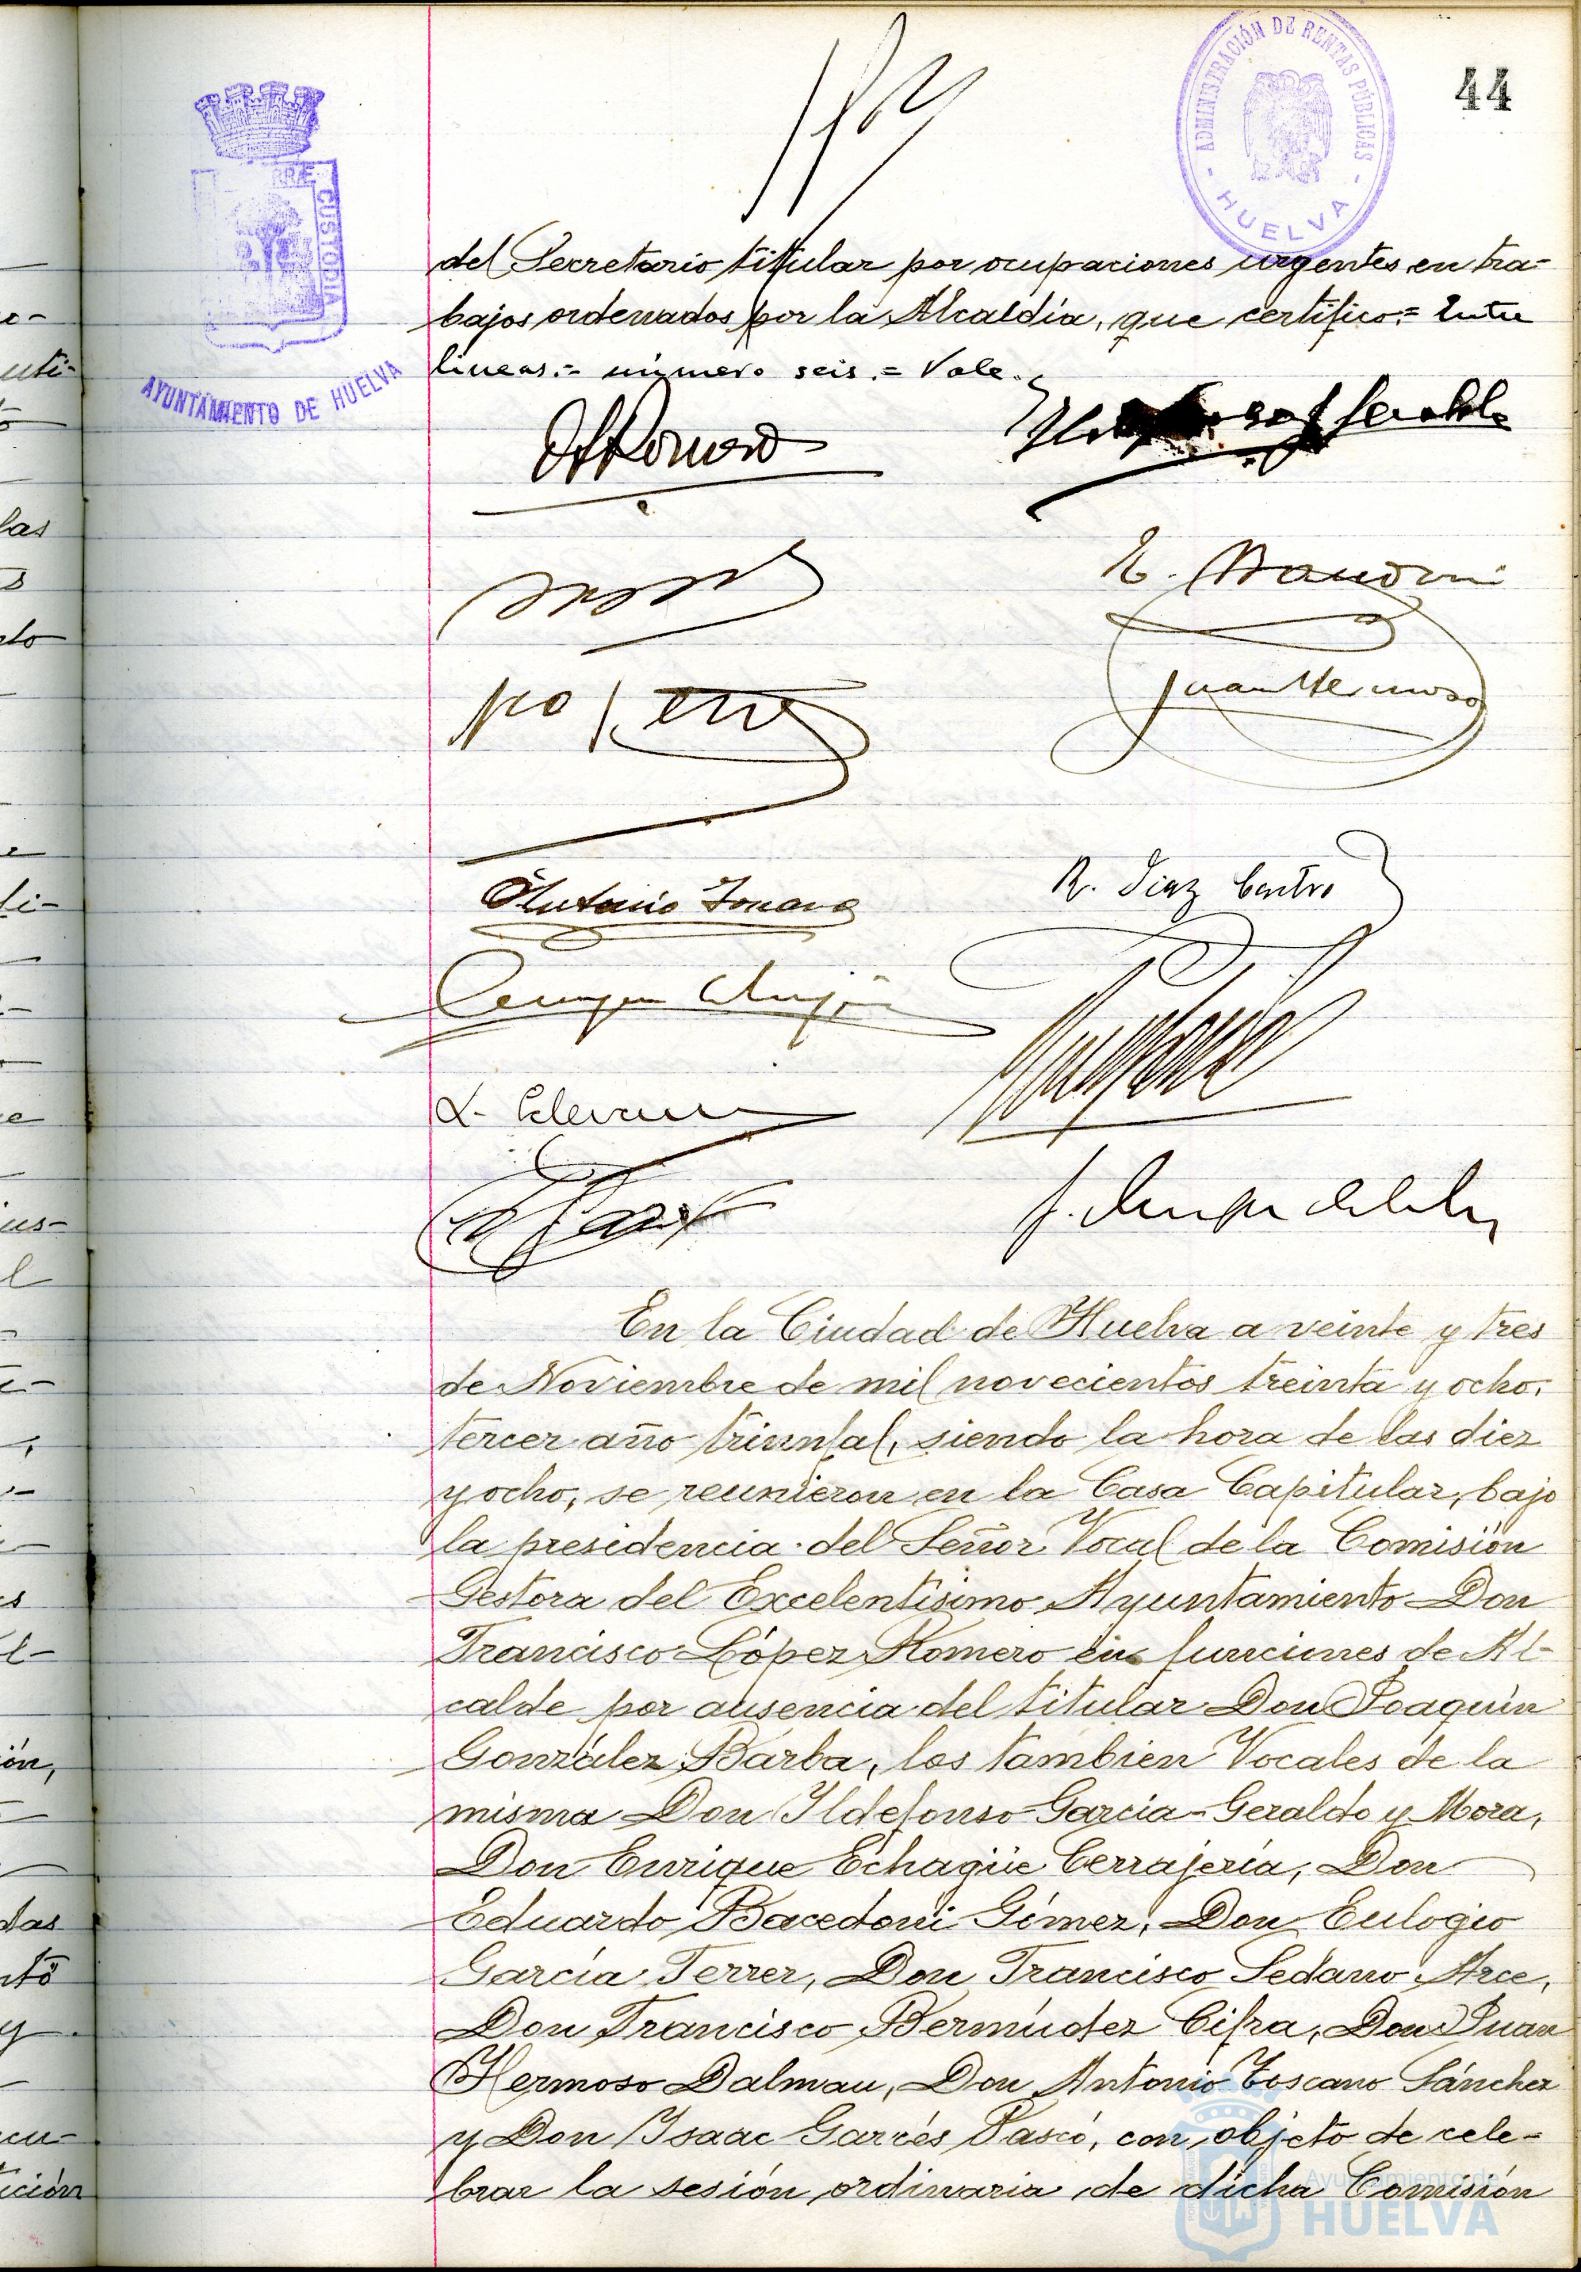 44
ADMINISTRACIÓN DE RENTAS PÚBLICAS
- HUELVA -
RRÆ CUSTODIA
AYUNTAMIENTO DE HUELVA
del Secretario titular por ocupaciones urgentes en tra-
bajos ordenados por la Alcaldía, que certifico.= Entre
lineas.= número seis.= Vale.
Romero
Juan Hermoso
Antonio Toscano
R. Diaz Castro
En la Ciudad de Huelva a veinte y tres
de Noviembre de mil novecientos treinta y ocho,
tercer año triunfal, siendo la hora de las diez
y ocho, se reunieron en la Casa Capitular, bajo
la presidencia del Señor Vocal de la Comisión
Gestora del Excelentísimo Ayuntamiento Don
Francisco López Romero en funciones de Al-
calde por ausencia del titular Don Joaquín
González Barba, los tambien Vocales de la
misma Don Ildefonso Garcia-Geraldo y Mora,
Don Enrique Echagüe Cerrajería, Don
Eduardo Bacedoni Gómez, Don Eulogio
García Ferrer, Don Francisco Sedano Arce,
Don Francisco Bermúdez Cifra, Don Juan
Hermoso Dalmau, Don Antonio Toscano Sánchez
y Don Isaac Garcés Pascó, con objeto de cele-
brar la sesión ordinaria de dicha Comisión
Ayuntamiento de
HUELVA